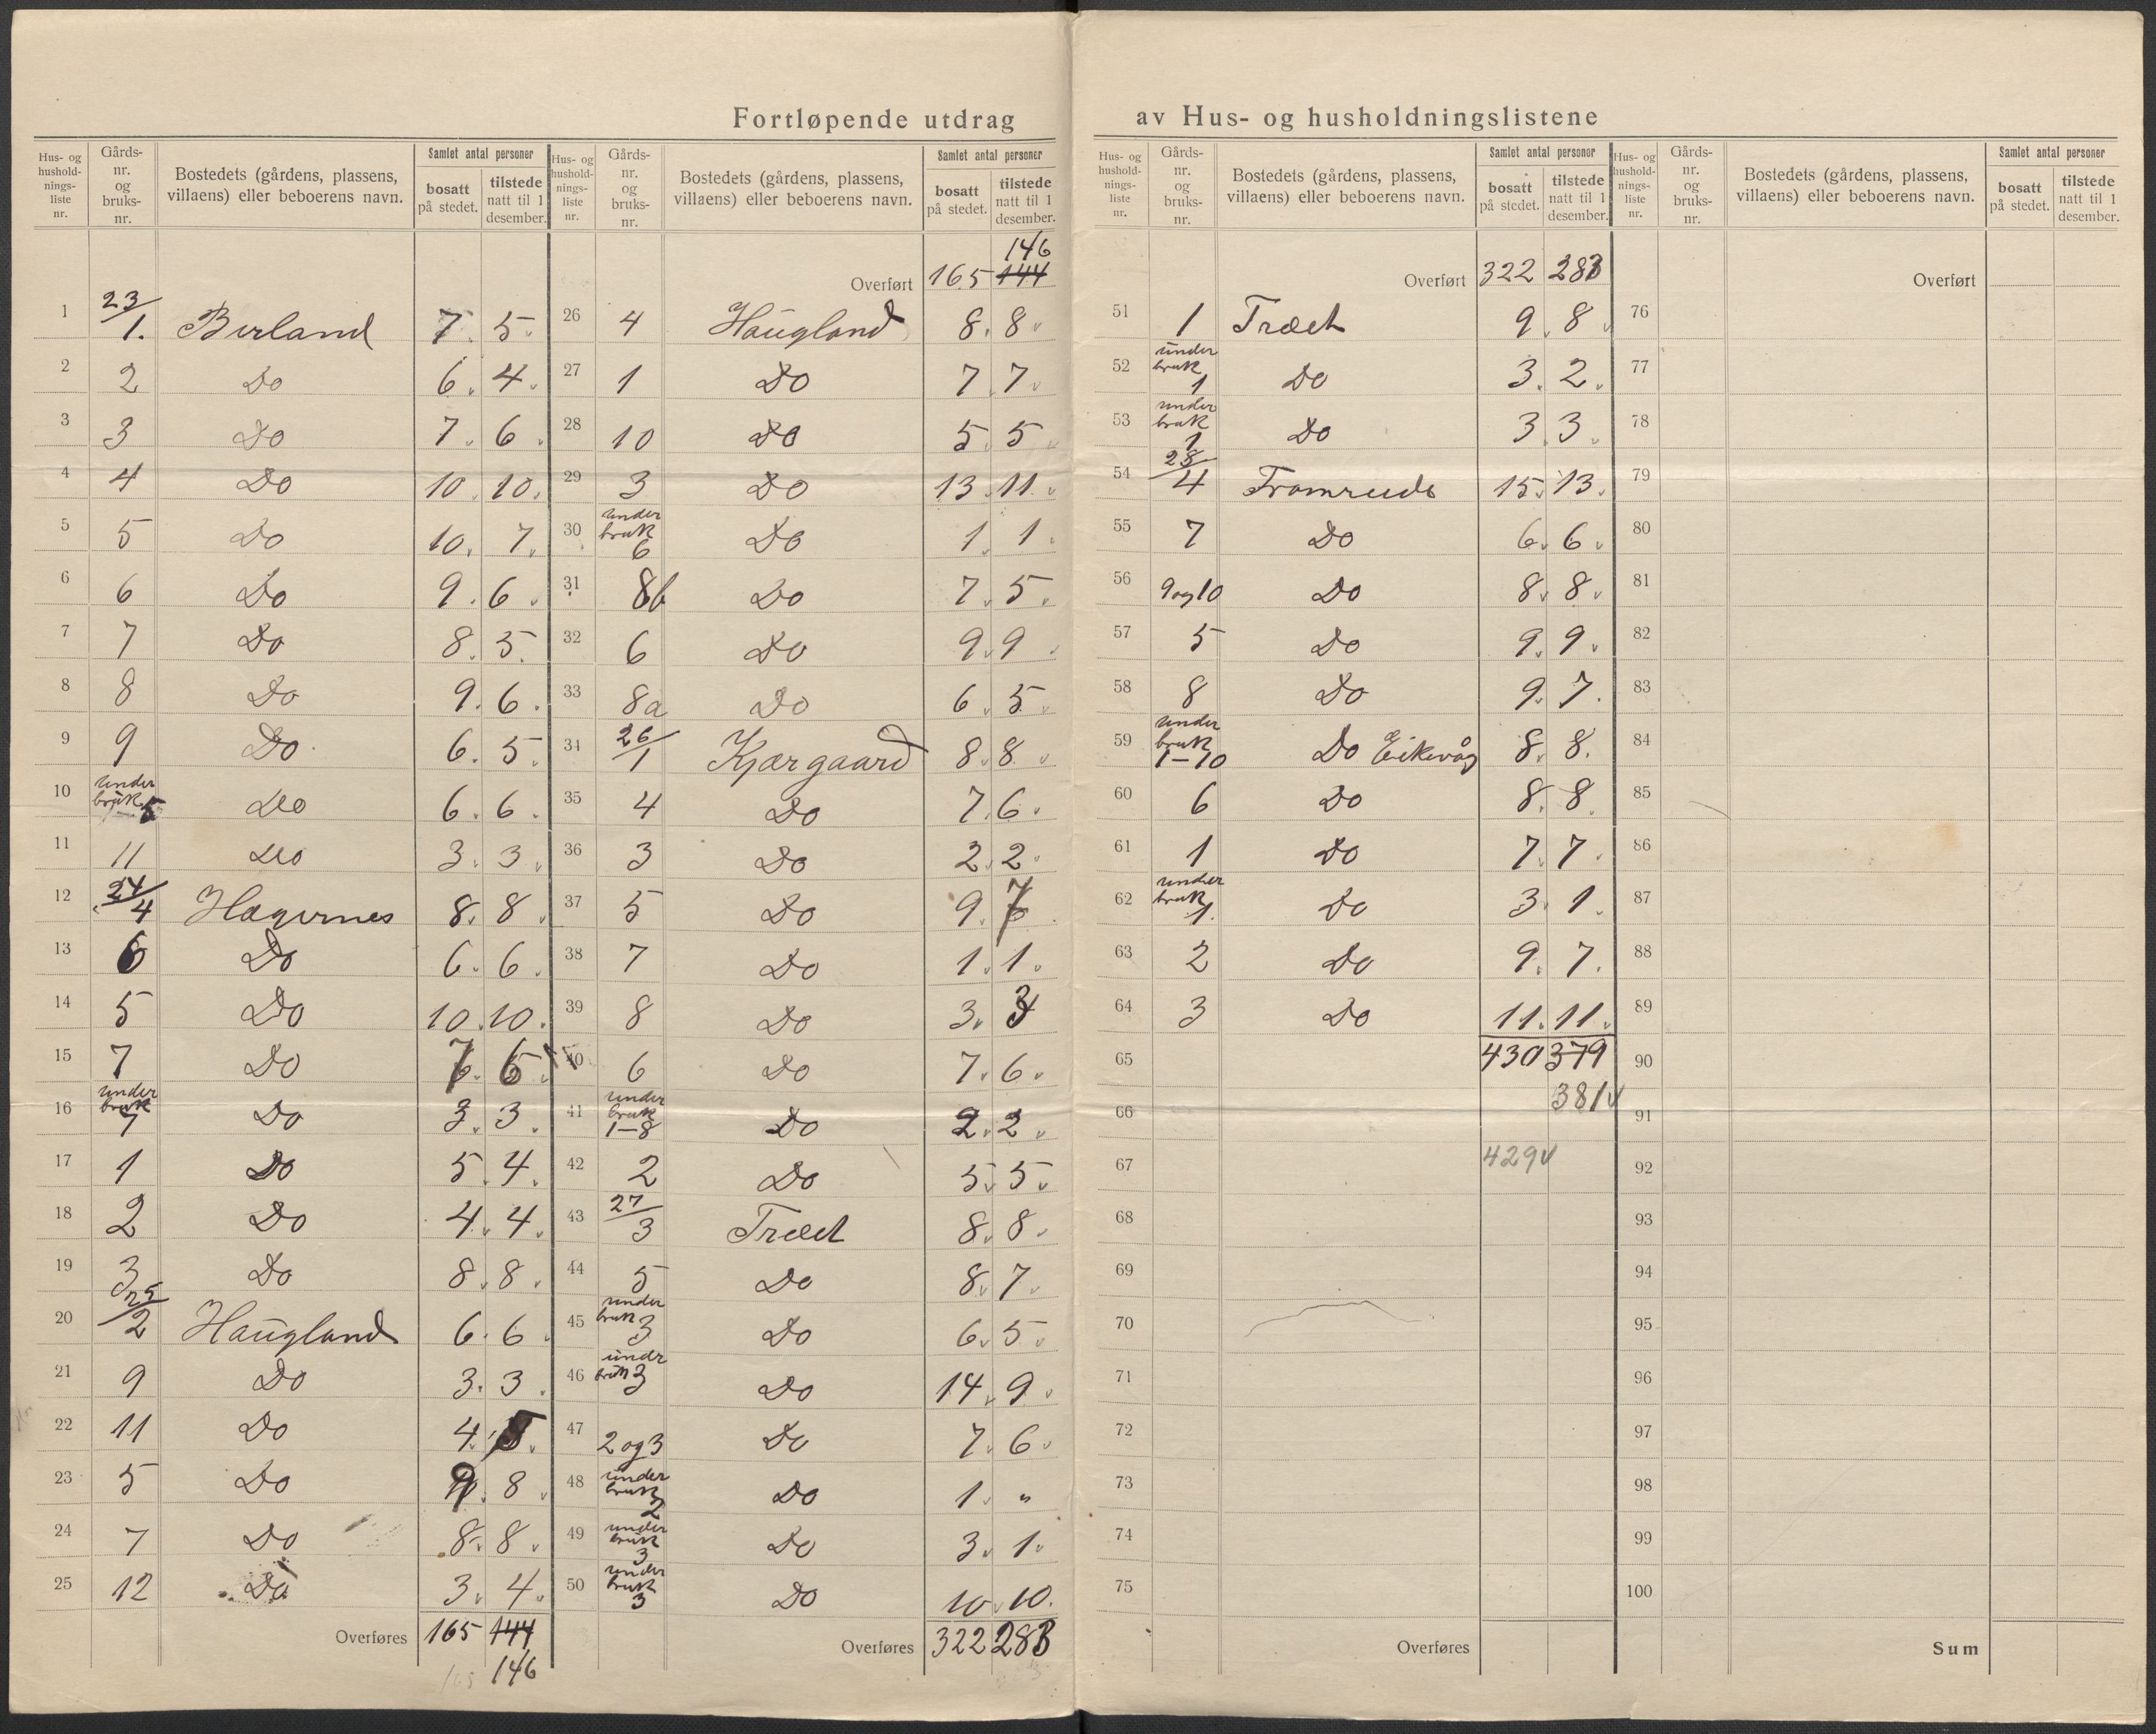 Fortløpende utdrag av Hus- og husholdningslistene
Hus- og husholdnings- liste nr. | Gårds- nr. og bruks- nr. | Bostedets (gårdens, plassens, villaens) eller beboerens navn. | Samlet antal personer | bosatt på stedet. | tilstede natt til 1 desember.
1 23/1. Birland 7 5
2 2 Do 6 4
3 3 Do 7 6
4 4 Do 10 10
5 5 Do 10 7
6 6 Do 9 6
7 7 Do 8 5
8 8 Do 9 6
9 9 Do 6 5
10 under bruk 5 Do 6 6
11 11 Do 3 3
12 24/4 Hægernes 8 8
13 6 Do 6 6
14 5 Do 10 10
15 7 Do 7 6
16 under bruk 7 Do 3 3
17 1 Do 5 4
18 2 Do 4 4
19 3 Do 8 8
20 25/2 Haugland 6 6
21 9 Do 3 3
22 11 Do 4 5
23 5 Do 9 8
24 7 Do 8 8
25 12 Do 3 4
Overføres 165 144
165 146
Hus- og husholdnings- liste nr. | Gårds- nr. og bruks- nr. | Bostedets (gårdens, plassens, villaens) eller beboerens navn. | Samlet antal personer | bosatt på stedet. | tilstede natt til 1 desember.
146
Overført 165 144
26 4 Haugland 8 8
27 1 Do 7 7
28 10 Do 5 5
29 3 Do 13 11
30 under bruk 6 Do 1 1
31 8b Do 7 5
32 6 Do 9 9
33 8a Do 6 5
34 26/1 Kjærgaard 8 8
35 4 Do 7 6
36 3 Do 2 2
37 5 Do 9 7
38 7 Do 1 1
39 8 Do 3 3
40 6 Do 7 6
41 under bruk 1-8 Do 2 2
42 2 Do 5 5
43 27/3 Træet 8 8
44 5 Do 8 7
45 under bruk 3 Do 6 5
46 under bruk 3 Do 14 9
47 2 og 3 Do 7 6
48 under bruk 2 Do 1 "
49 under bruk 3 Do 3 1
50 under bruk 3 Do 10 10
Overføres 322 283
Hus- og husholdnings- liste nr. | Gårds- nr. og bruks- nr. | Bostedets (gårdens, plassens, villaens) eller beboerens navn. | Samlet antal personer | bosatt på stedet. | tilstede natt til 1 desember.
Overført 322 283
51 1 Træet 9 8
52 under bruk 1 Do 3 2
53 under bruk 1 Do 3 3
54 28/4 Framreide 15 13
55 7 Do 6 6
56 9 og 10 Do 8 8
57 5 Do 9 9
58 8 Do 9 7
59 under bruk 1-10 Do Eikevåg 8 8
60 6 Do 8 8
61 1 Do 7 7
62 under bruk 1. Do 3 1
63 2 Do 9 7
64 3 Do 11 11
65 430 379
66 381
67 429
68
69
70
71
72
73
74
75
Overføres
Hus- og husholdnings- liste nr. | Gårds- nr. og bruks- nr. | Bostedets (gårdens, plassens, villaens) eller beboerens navn. | Samlet antal personer | bosatt på stedet. | tilstede natt til 1 desember.
Overført
76
77
78
79
80
81
82
83
84
85
86
87
88
89
90
91
92
93
94
95
96
97
98
99
100
Sum